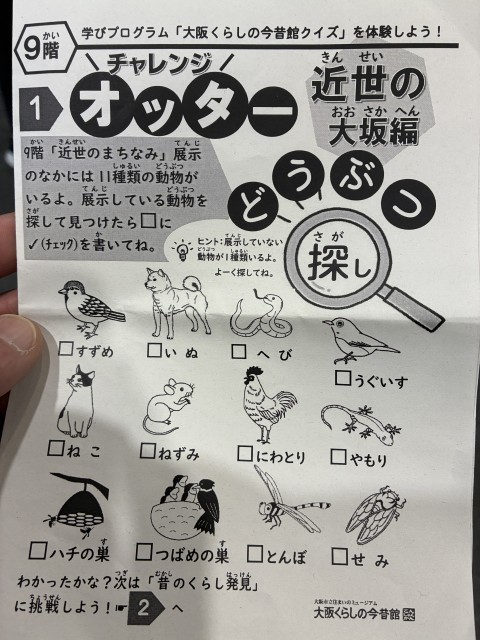 9階
学びプログラム「大阪くらしの今昔館クイズ」を体験しよう！
チャレンジ
1 オッター
近世の
大坂編
どうぶつ
探し
9階「近世のまちなみ」展示
のなかには11種類の動物が
いるよ。展示している動物を
探して見つけたら□に
✓(チェック)を書いてね。
ヒント:展示していない
動物が1種類いるよ。
よーく探してね。
□すずめ □いぬ □へび □うぐいす
□ねこ □ねずみ □にわとり □やもり
□ハチの巣 □つばめの巣 □とんぼ □せみ
わかったかな？次は「昔のくらし発見」
に挑戦しよう！☛ 2 へ
大阪市立住まいのミュージアム
大阪くらしの今昔館